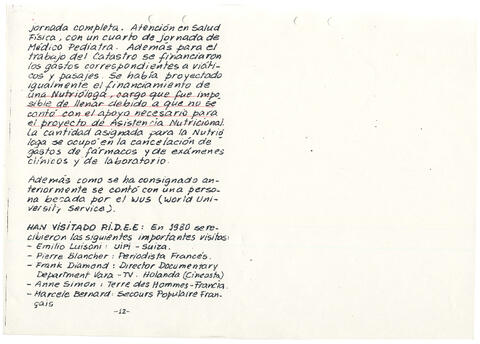 jornada completa. Atención en Salud
Física, con un cuarto de jornada de
Médico Pediatra. Además para el
trabajo del Catastro se financiaron
los gastos correspondientes a viáti-
cos y pasajes. Se había proyectado
igualmente el financiamiento de
una Nutrióloga, cargo que fue impo
sible de llenar debido a que no se
contó con el apoyo necesario para
el proyecto de Asistencia Nutricional.
La cantidad asignada para la Nutrió
loga se ocupó en la cancelación de
gastos de fármacos y de exámenes
clínicos y de laboratorio.
Además como se ha consignado an-
teriormente se contó con una perso-
na becada por el WUS (World Uni-
versity Service).
HAN VISITADO P.I.D.E.E: En 1980 se re-
cibieron las siguientes importantes visitas:
- Emilio Luisoni: UIPI - Suiza.
- Pierre Blancher: Periodista Francés.
- Frank Diamond: Director Documentary
Department Vara - TV. Holanda (Cineasta)
- Anne Simon: Terre des Hommes - Francia.
- Marcele Bernard: Secours Populaire Fran-
çais
-12-